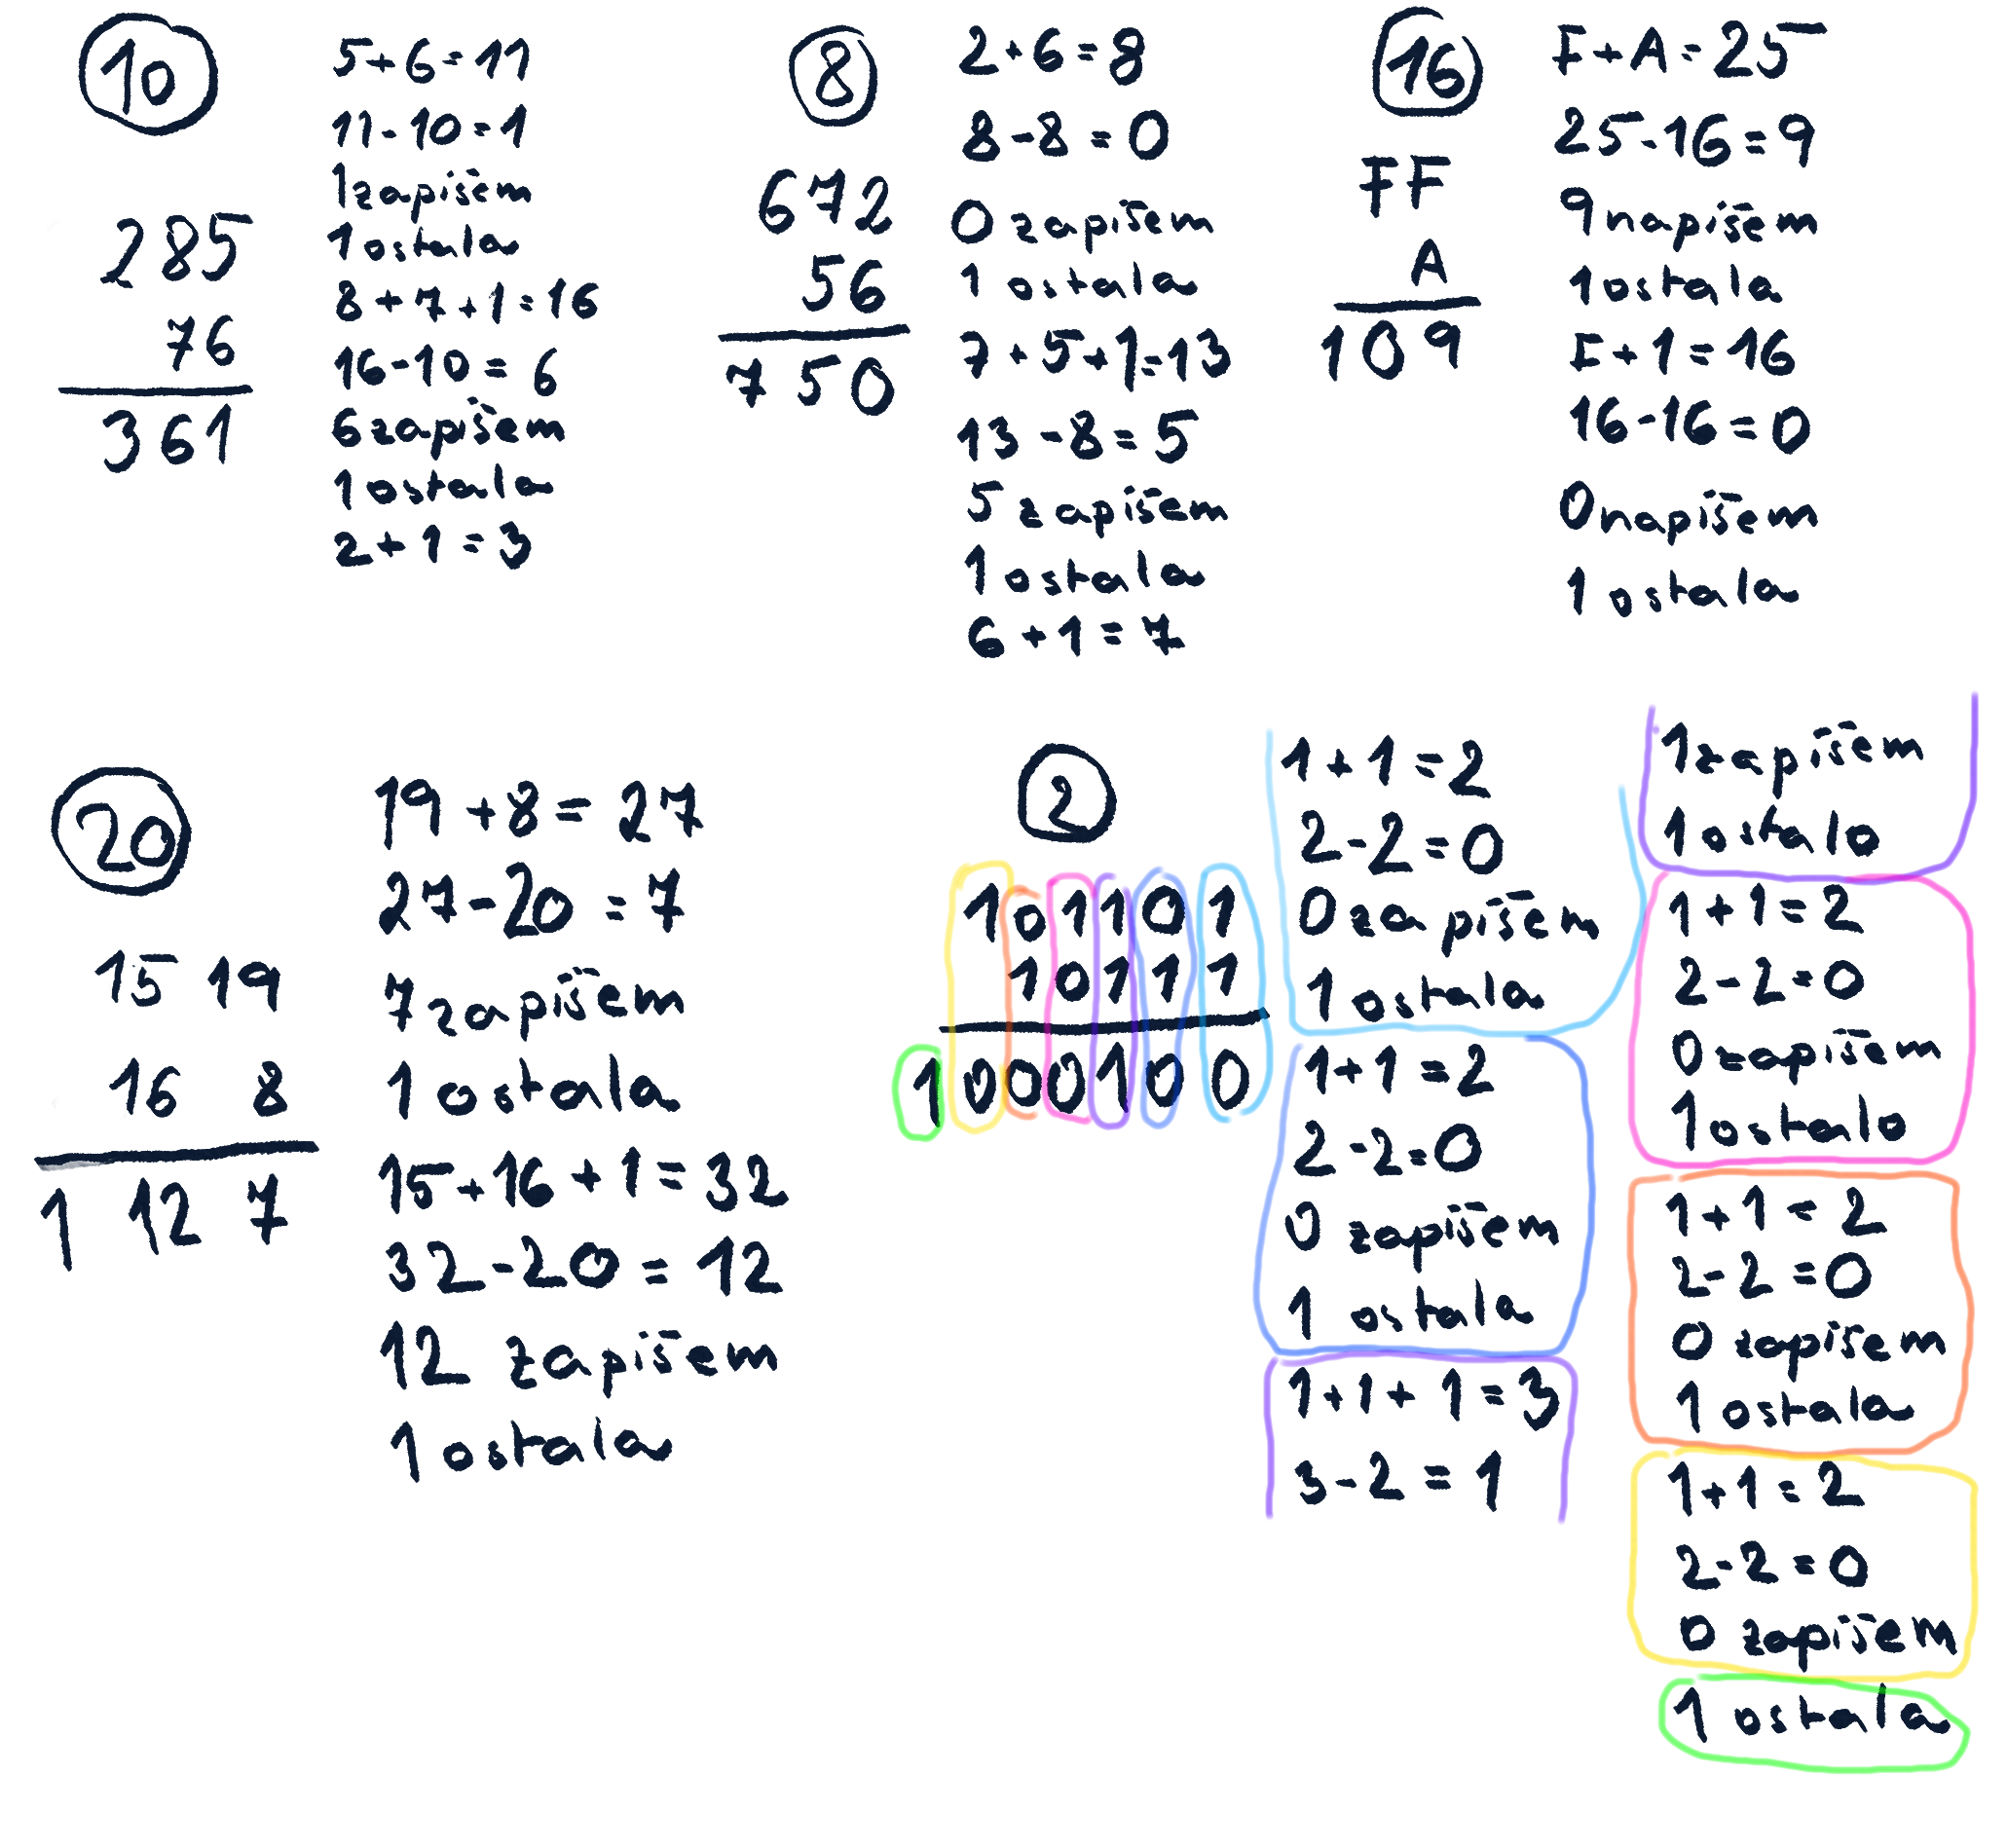 10
5+6=11
11-10=1
1 zapíšem
1 ostala
8+7+1=16
16-10=6
6 zapíšem
1 ostala
2+1=3
285
76
361
8
2+6=8
8-8=0
0 zapíšem
1 ostala
7+5+1=13
13-8=5
5 zapíšem
1 ostala
6+1=7
672
56
750
16
F+A=25
25-16=9
9 napíšem
1 ostala
F+1=16
16-16=0
0 napíšem
1 ostala
FF
A
109
20
19+8=27
27-20=7
7 zapíšem
1 ostala
15+16+1=32
32-20=12
12 zapíšem
1 ostala
15 19
16 8
1 12 7
2
101101
10111
1000100
1+1=2
2-2=0
0 zapíšem
1 ostala
1+1=2
2-2=0
0 zapíšem
1 ostala
1+1+1=3
3-2=1
1 zapíšem
1 ostalo
1+1=2
2-2=0
0 zapíšem
1 ostalo
1+1=2
2-2=0
0 zapíšem
1 ostala
1+1=2
2-2=0
0 zapíšem
1 ostala